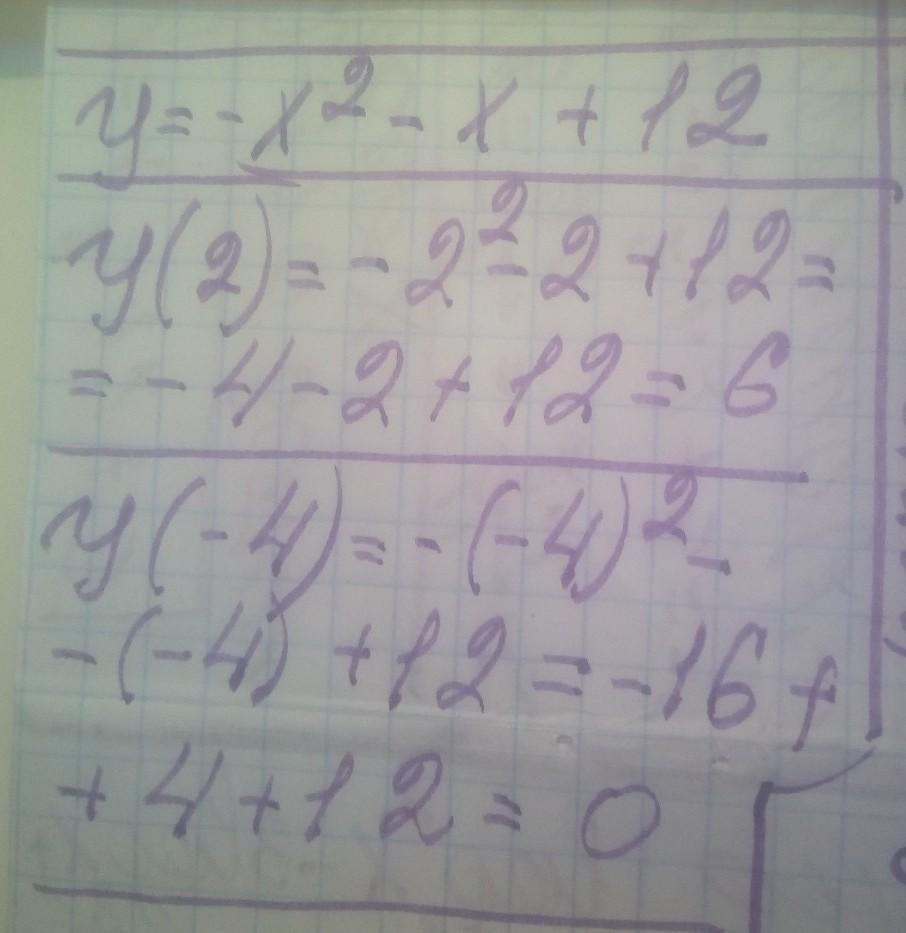 y = -x² - x + 12
y(2) = -2² - 2 + 12 =
= -4 - 2 + 12 = 6
y(-4) = -(-4)² -
-(-4) + 12 = -16 +
+ 4 + 12 = 0